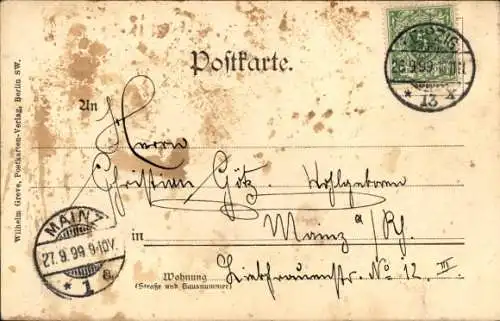 Postkarte.
26.9.99
* 13 X
An
Herrn
Christian Götz. Wohlgeboren
in Mainz a/Rh.
Wohnung Liebfrauenstr. No 12 III.
(Straße und Hausnummer)
MAINZ
27.9.99 9-10V.
* 1 a.
Wilhelm Greve, Postkarten-Verlag, Berlin SW.